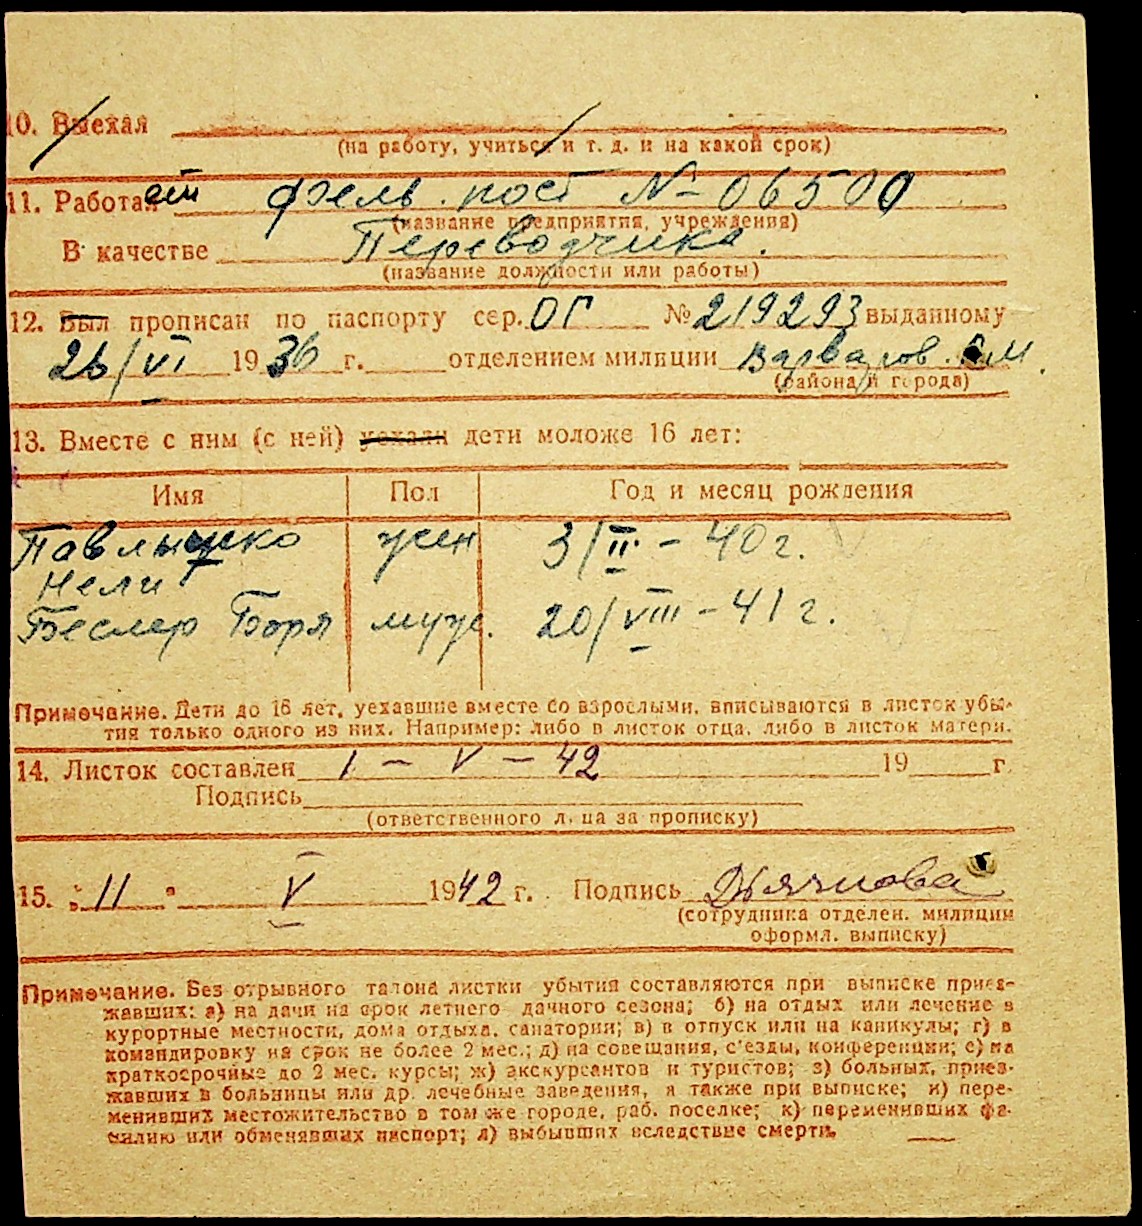 10. Выехал
(на работу, учиться и т. д. и на какой срок)
11. Работает фельд. пост № 06500
(название предприятия, учреждения)
В качестве Переводчика.
(название должности или работы)
12. Был прописан по паспорту сер. ОГ № 219293 выданному
26/VI 1936 г. отделением милиции Варваров. РМ.
(района и города)
13. Вместе с ним (с ней) уехали дети моложе 16 лет:
Имя Пол Год и месяц рождения
жен 3/II - 40 г.
Нели
Беслер Боря муж. 20/VIII - 41 г.
Примечание. Дети до 16 лет, уехавшие вместе со взрослыми, вписываются в листок убы-
тия только одного из них. Например: либо в листок отца, либо в листок матери.
14. Листок составлен 1 - V - 42 19 г.
Подпись
(ответственного лица за прописку)
15. „11" V 1942 г. Подпись
(сотрудника отделен. милиции
оформл. выписку)
Примечание. Без отрывного талона листки убытия составляются при выписке приез-
жавших: а) на дачи на срок летнего дачного сезона; б) на отдых или лечение в
курортные местности, дома отдыха, санатории; в) в отпуск или на каникулы; г) в
командировку на срок не более 2 мес.; д) на совещания, с'езды, конференции; е) на
краткосрочные до 2 мес. курсы; ж) экскурсантов и туристов; з) больных, приез-
жавших в больницы или др. лечебные заведения, а также при выписке; и) пере-
менивших местожительство в том же городе, раб. поселке; к) переменивших фа-
милию или обменявших паспорт; л) выбывших вследствие смерти.